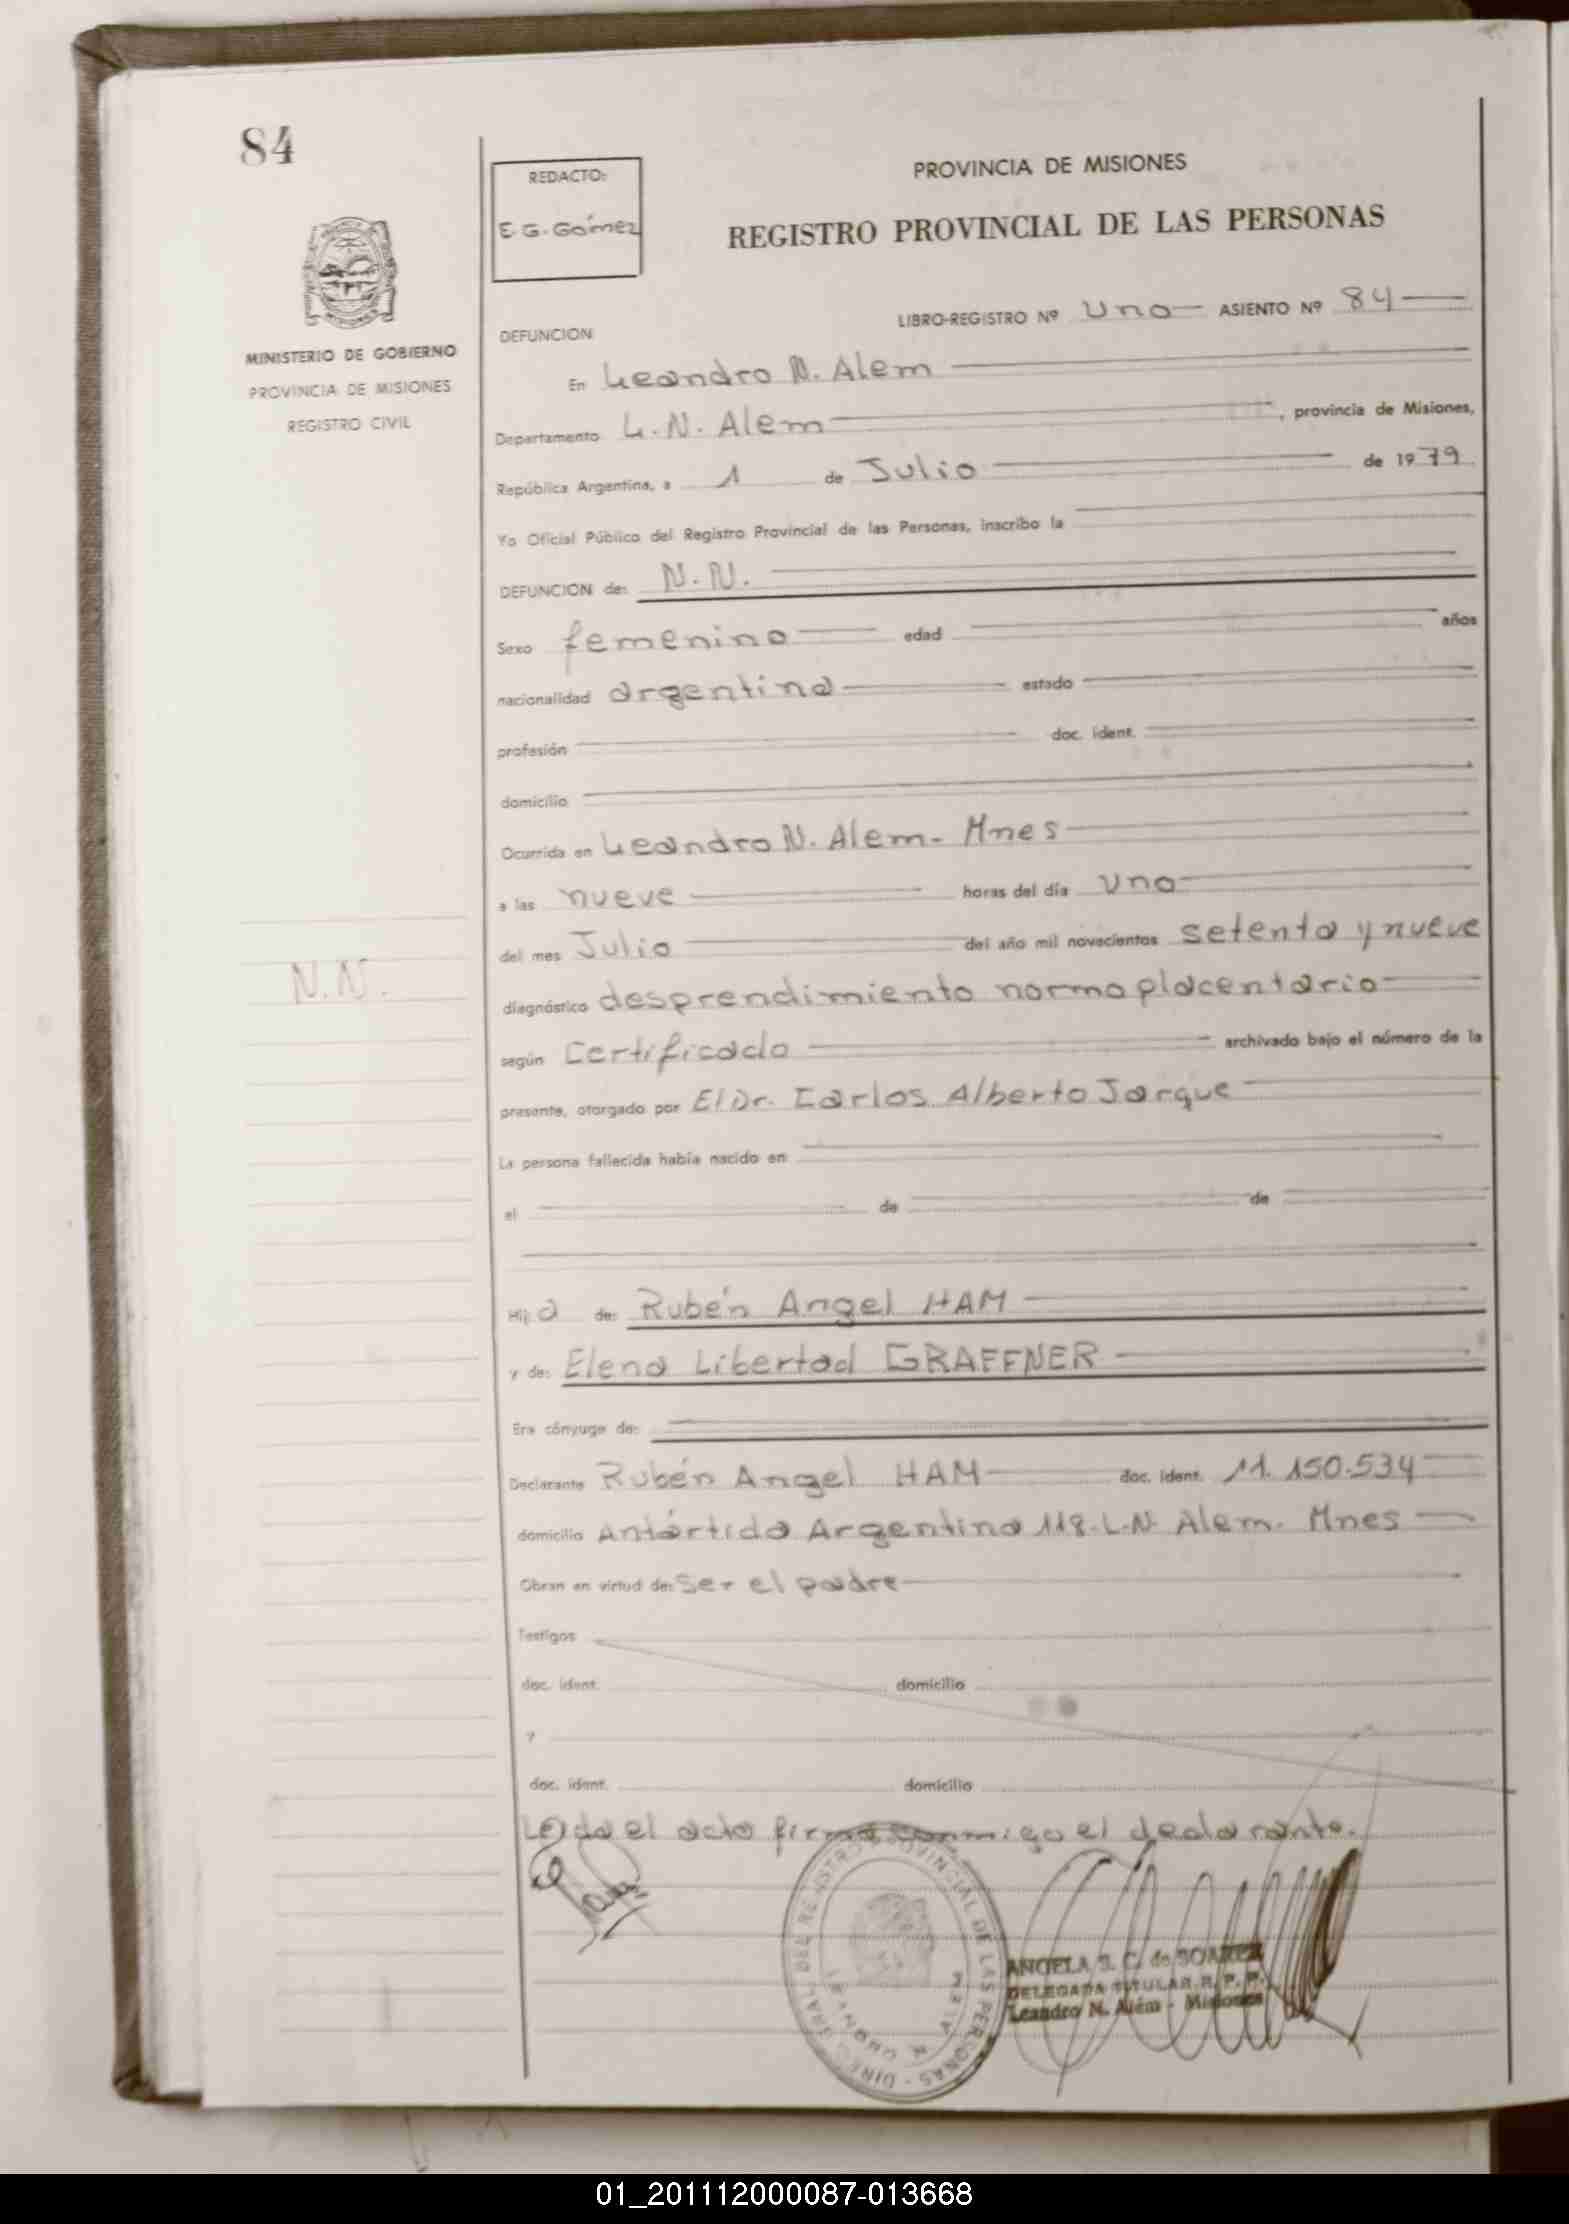 84
REDACTO:
E.G. Gómez
PROVINCIA DE MISIONES
REGISTRO PROVINCIAL DE LAS PERSONAS
MINISTERIO DE GOBIERNO
PROVINCIA DE MISIONES
REGISTRO CIVIL
LIBRO-REGISTRO Nº Uno ASIENTO Nº 84
DEFUNCION
En Leandro N. Alem
Departamento L.N. Alem, provincia de Misiones,
República Argentina, a 1 de Julio de 1979
Yo Oficial Público del Registro Provincial de las Personas, inscribo la
DEFUNCION de: N.N.
Sexo femenino edad años
nacionalidad argentina estado
profesión doc. ident.
domicilio
Ocurrida en Leandro N. Alem - Mnes
a las nueve horas del día uno
del mes Julio del año mil novecientos setenta y nueve
N.N.
diagnóstico desprendimiento normoplacentario
según Certificado archivado bajo el número de la
presente, otorgado por El Dr. Carlos Alberto Jarque
La persona fallecida había nacido en
el de de
Hija de: Rubén Angel HAM
y de: Elena Libertad GRAFFNER
Era cónyuge de:
Declarante Rubén Angel HAM doc. ident. 11.150.534
domicilio Antártida Argentina 118. L.N. Alem. Mnes
Obran en virtud de: Ser el padre
Testigos
doc. ident. domicilio
y
doc. ident. domicilio
Leída el acta firma conmigo el declarante.
DIREC. GRAL. DEL REGISTRO PROVINCIAL DE LAS PERSONAS
ANGELA S. C. de SOAREZ
DELEGADA TITULAR R. P. P.
Leandro N. Alem - Misiones
01_201112000087-013668